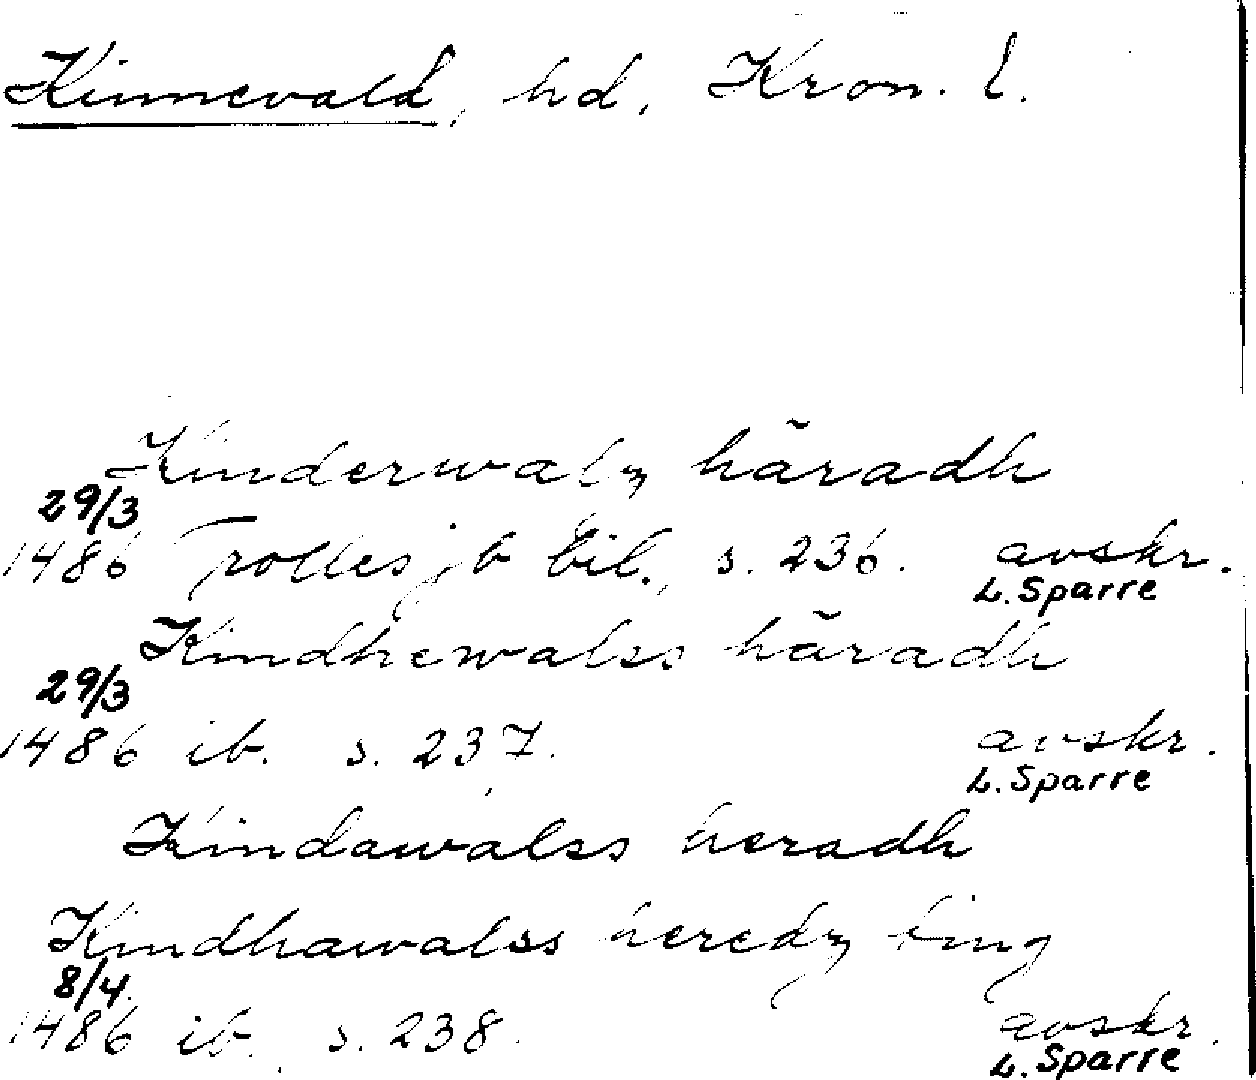 Kinnevald, hd, Kron. l.
Kinderwalz häradh
29/3
1486 Trolles jb bil., s. 236. avskr.
L. Sparre
Kindhewalss häradh
29/3
1486 ib. s. 237. avskr.
L. Sparre
Kindawalss heradh
Kindhawalss heredz ting
8/4
1486 ib. s. 238 avskr.
L. Sparre